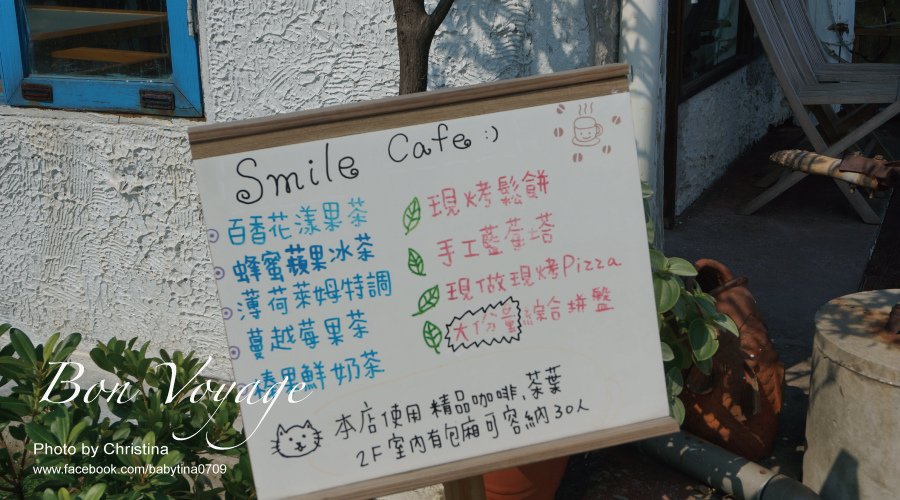 Smile Cafe :)
百香花漾果茶
蜂蜜蘋果冰茶
薄荷萊姆特調
蔓越莓果茶
鮮奶茶
現烤鬆餅
手工藍莓塔
現做現烤Pizza
大份量綜合拼盤
本店使用精品咖啡、茶葉
2F室內有包廂可容納30人
Bon Voyage
Photo by Christina
www.facebook.com/babytina0709